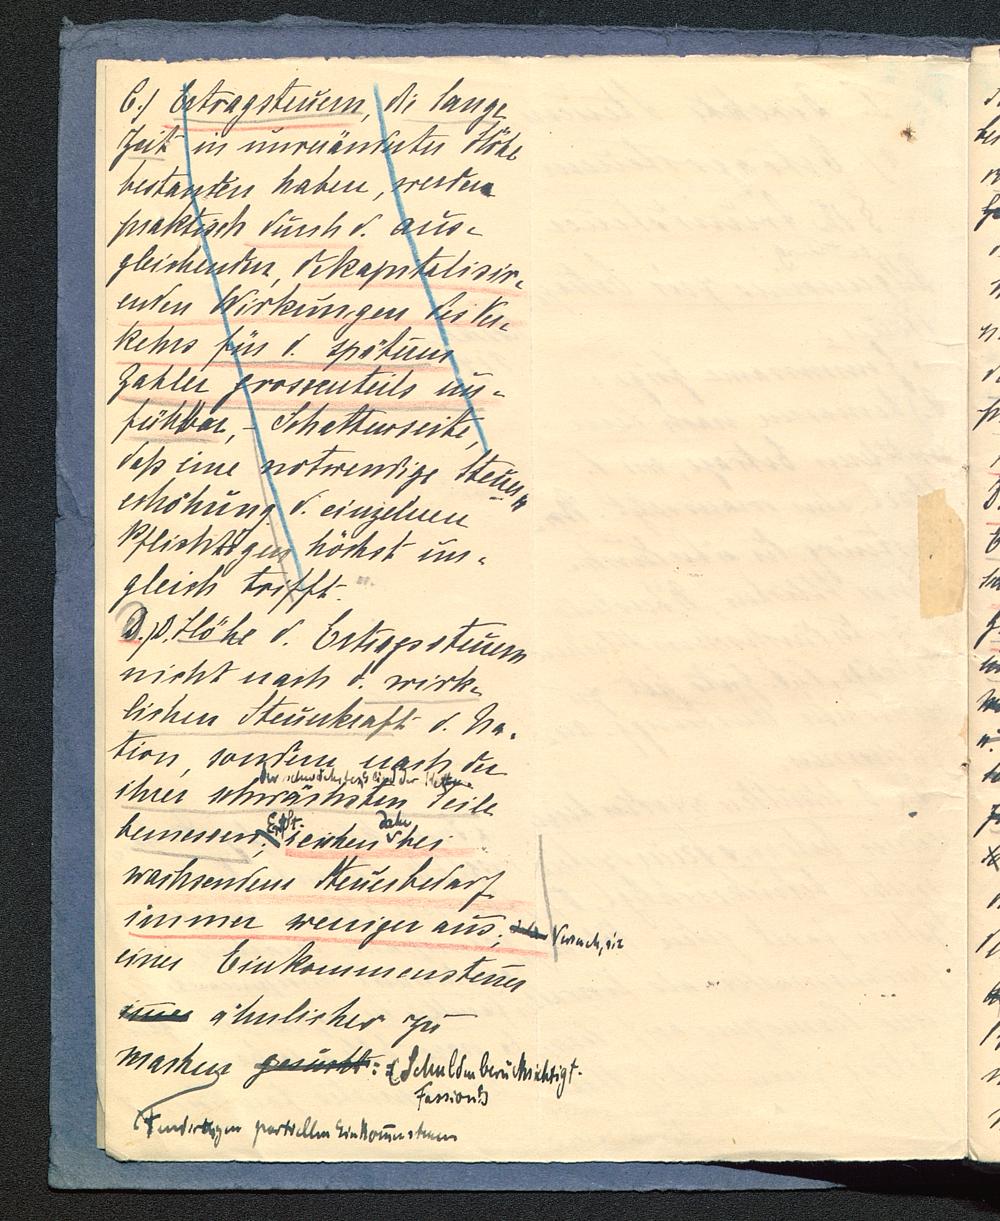 C.) Ertragsteuern, die lange
Zeit in unveränderter Höhe
bestanden haben, werden
praktisch durch d. aus-
gleichenden, dekapitalisir-
enden Wirkungen des Ver-
kehrs für d. spätern
Zahler grossenteils un-
fühlbar, - Schattenseite,
daß eine notwendige Steuer-
erhöhung d. einzelnen
Pflichtigen höchst un-
gleich trifft.
D.) D. Höhe d. Ertragssteuern
nicht nach d. wirk-
lichen Steuerkraft d. Na-
tion, sondern nach der
der schwächsten Glied der Kette
ihrer schwächsten Teile
bemessen; reichen daher bei
wachsendem Steuerbedarf
immer weniger aus; Versuch, sie
einer Einkommensteuer
ähnlicher zu
machen gesucht: (Schuldenberücksichtigt.
Fassion
partiellen Einkommensteuern